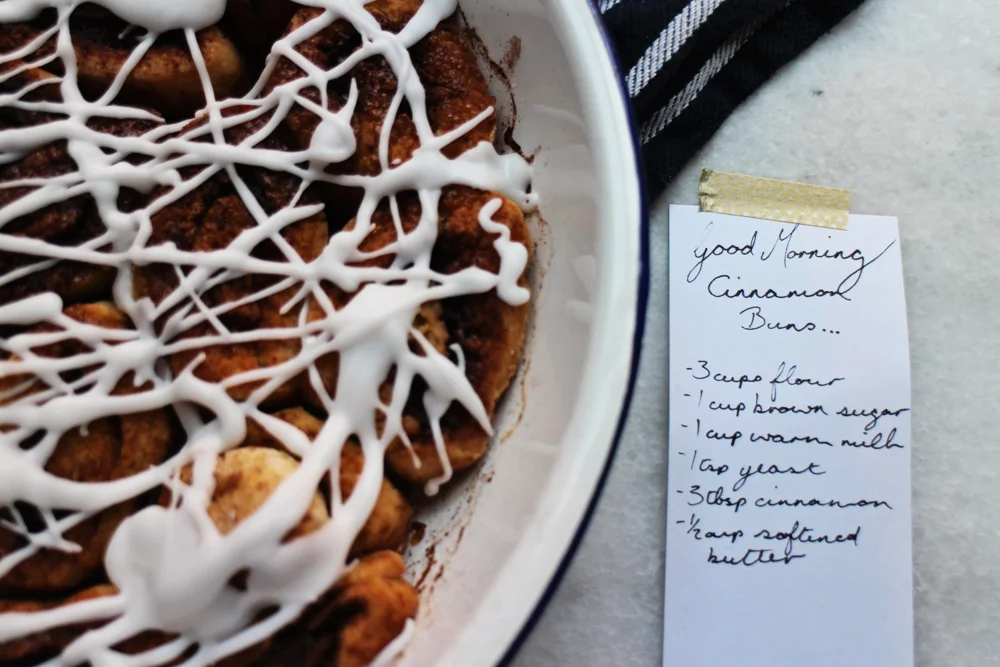 Good Morning
Cinnamon
Buns...
-3 cups flour
-1 cup brown sugar
-1 cup warm milk
-1 tsp yeast
-3 tbsp cinnamon
-½ cup softened
butter